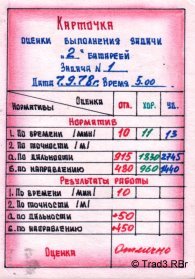 Карточка
оценки выполнения задачи
„2" батареей
Задача N 1
Дата 7.9.78 г. Время 5.00
Нормативы Оценка отл. хор. уд.
Норматив
1. По времени /мин/ 10 11 13
2. По точности /м/
а. по дальности 915 1830 2745
б. по направлению 480 960 1440
Результаты работы
1. По времени /мин/ 10
2. По точности /м/
а. по дальности +50
б. по направлению +450
Оценка Отлично
© Trad3.RBr